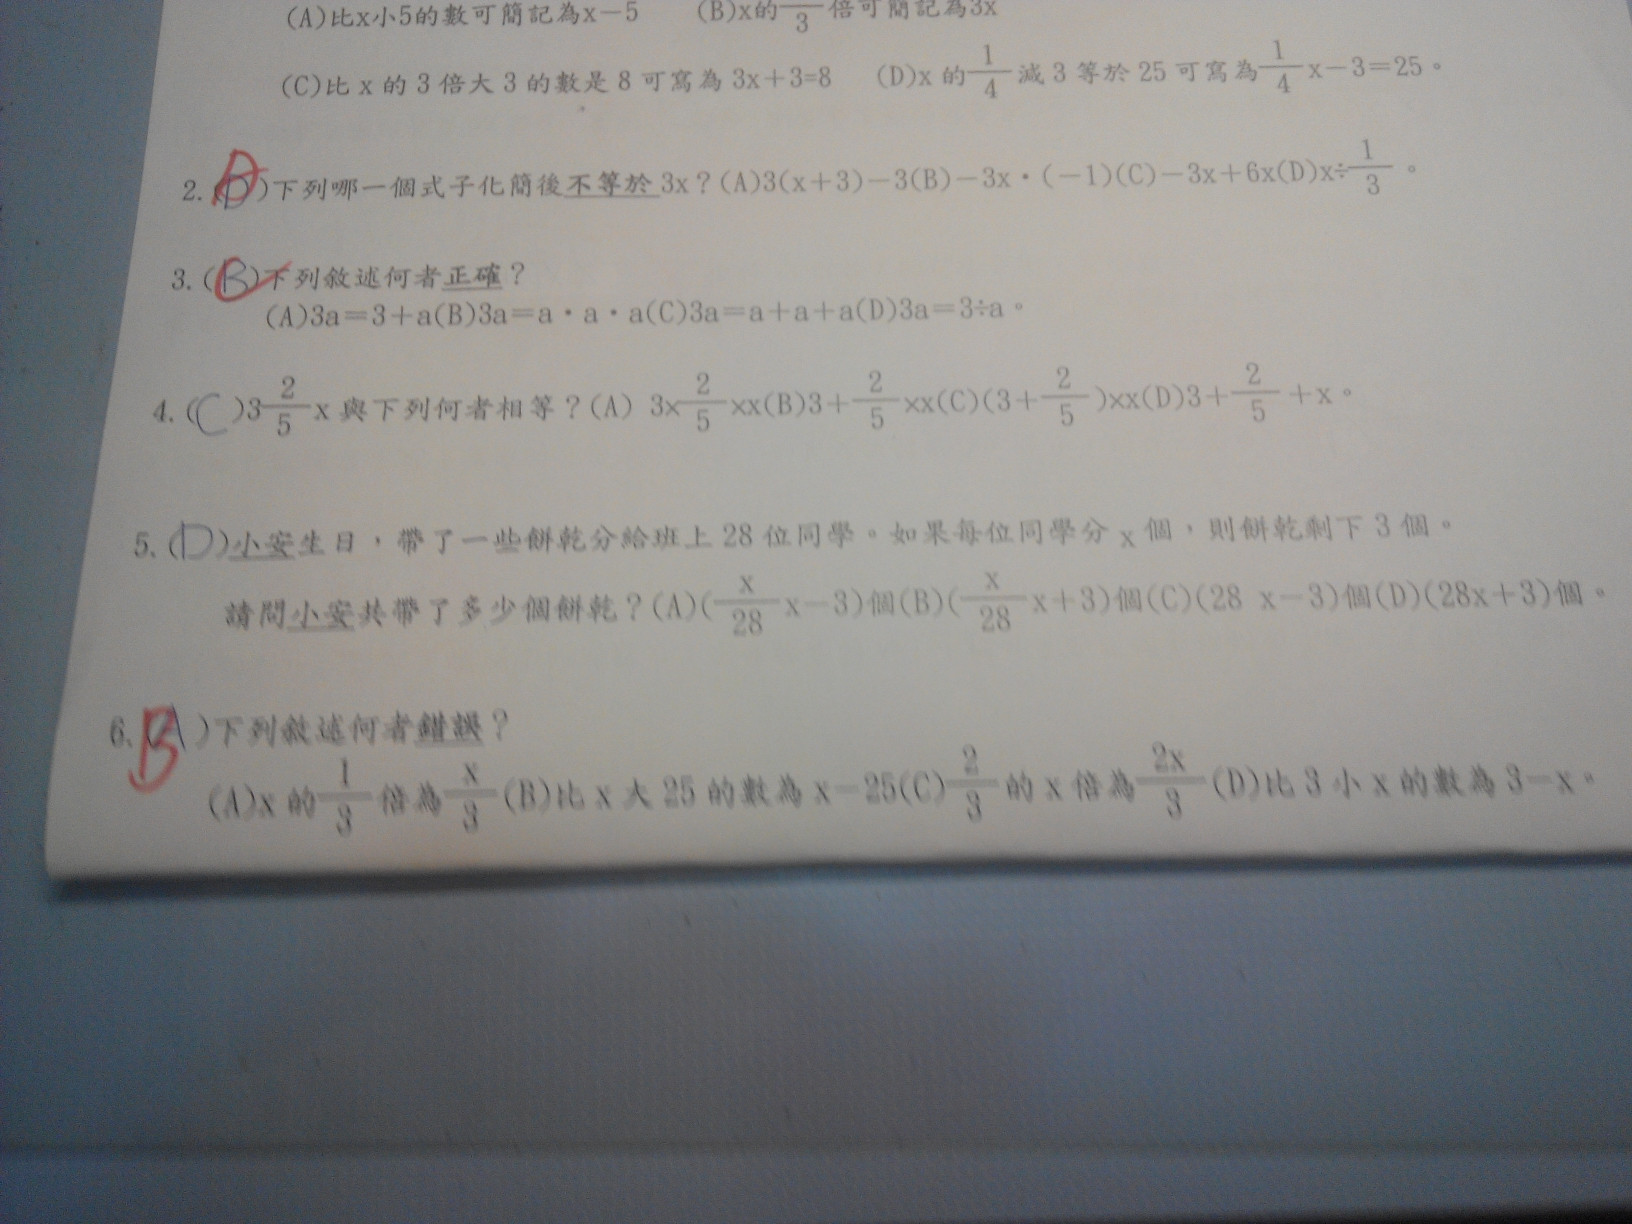 (A)比x小5的數可簡記為x－5 (B)x的 3 倍可簡記為3x
(C)比 x 的 3 倍大 3 的數是 8 可寫為 3x＋3=8 (D)x 的 1/4 減 3 等於 25 可寫為 1/4 x－3＝25。
2.(D)下列哪一個式子化簡後不等於 3x？(A)3(x＋3)－3(B)－3x·(－1)(C)－3x＋6x(D)x÷1/3。
3.(B)下列敘述何者正確？
(A)3a＝3＋a(B)3a＝a·a·a(C)3a＝a＋a＋a(D)3a＝3÷a。
4.(C)3 2/5 x 與下列何者相等？(A) 3×2/5×x(B)3＋2/5×x(C)(3＋2/5)×x(D)3＋2/5＋x。
5.(D)小安生日，帶了一些餅乾分給班上 28 位同學。如果每位同學分 x 個，則餅乾剩下 3 個。
請問小安共帶了多少個餅乾？(A)(x/28 x－3)個(B)(x/28 x＋3)個(C)(28 x－3)個(D)(28x＋3)個。
6.B )下列敘述何者錯誤？
(A)x 的 1/3 倍為 x/3 (B)比 x 大 25 的數為 x－25(C) 2/3 的 x 倍為 2x/3 (D)比 3 小 x 的數為 3－x。